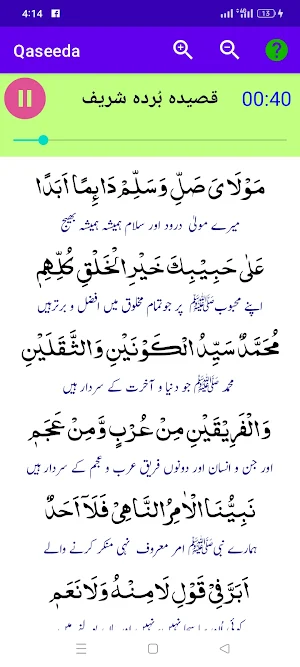 4:14
13
Qaseeda
قصیدہ بُردہ شریف
00:40
مَوْلَايَ صَلِّ وَسَلِّمْ دَائِمًا اَبَدًا
میرے مولیٰ درود اور سلام ہمیشہ ہمیشہ بھیج
عَلٰى حَبِيْبِكَ خَيْرِ الْخَلْقِ كُلِّهِمِ
اپنے محبوب ﷺ پر جو تمام مخلوق میں افضل و برتر ہیں
مُحَمَّدٌ سَيِّدُ الْكَوْنَيْنِ وَالثَّقَلَيْنِ
محمد ﷺ جو دنیا و آخرت کے سردار ہیں
وَالْفَرِيْقَيْنِ مِنْ عُرْبٍ وَّمِنْ عَجَمٖ
اور جن و انسان اور دونوں فریق عرب و عجم کے سردار ہیں
نَبِيُّنَا الْاٰمِرُ النَّاهِيْ فَلَآ اَحَدٌ
ہمارے نبی ﷺ امر معروف نہی منکر کرنے والے
اَبَرَّ فِيْ قَوْلِ لَا مِنْهُ وَلَا نَعَمٖ